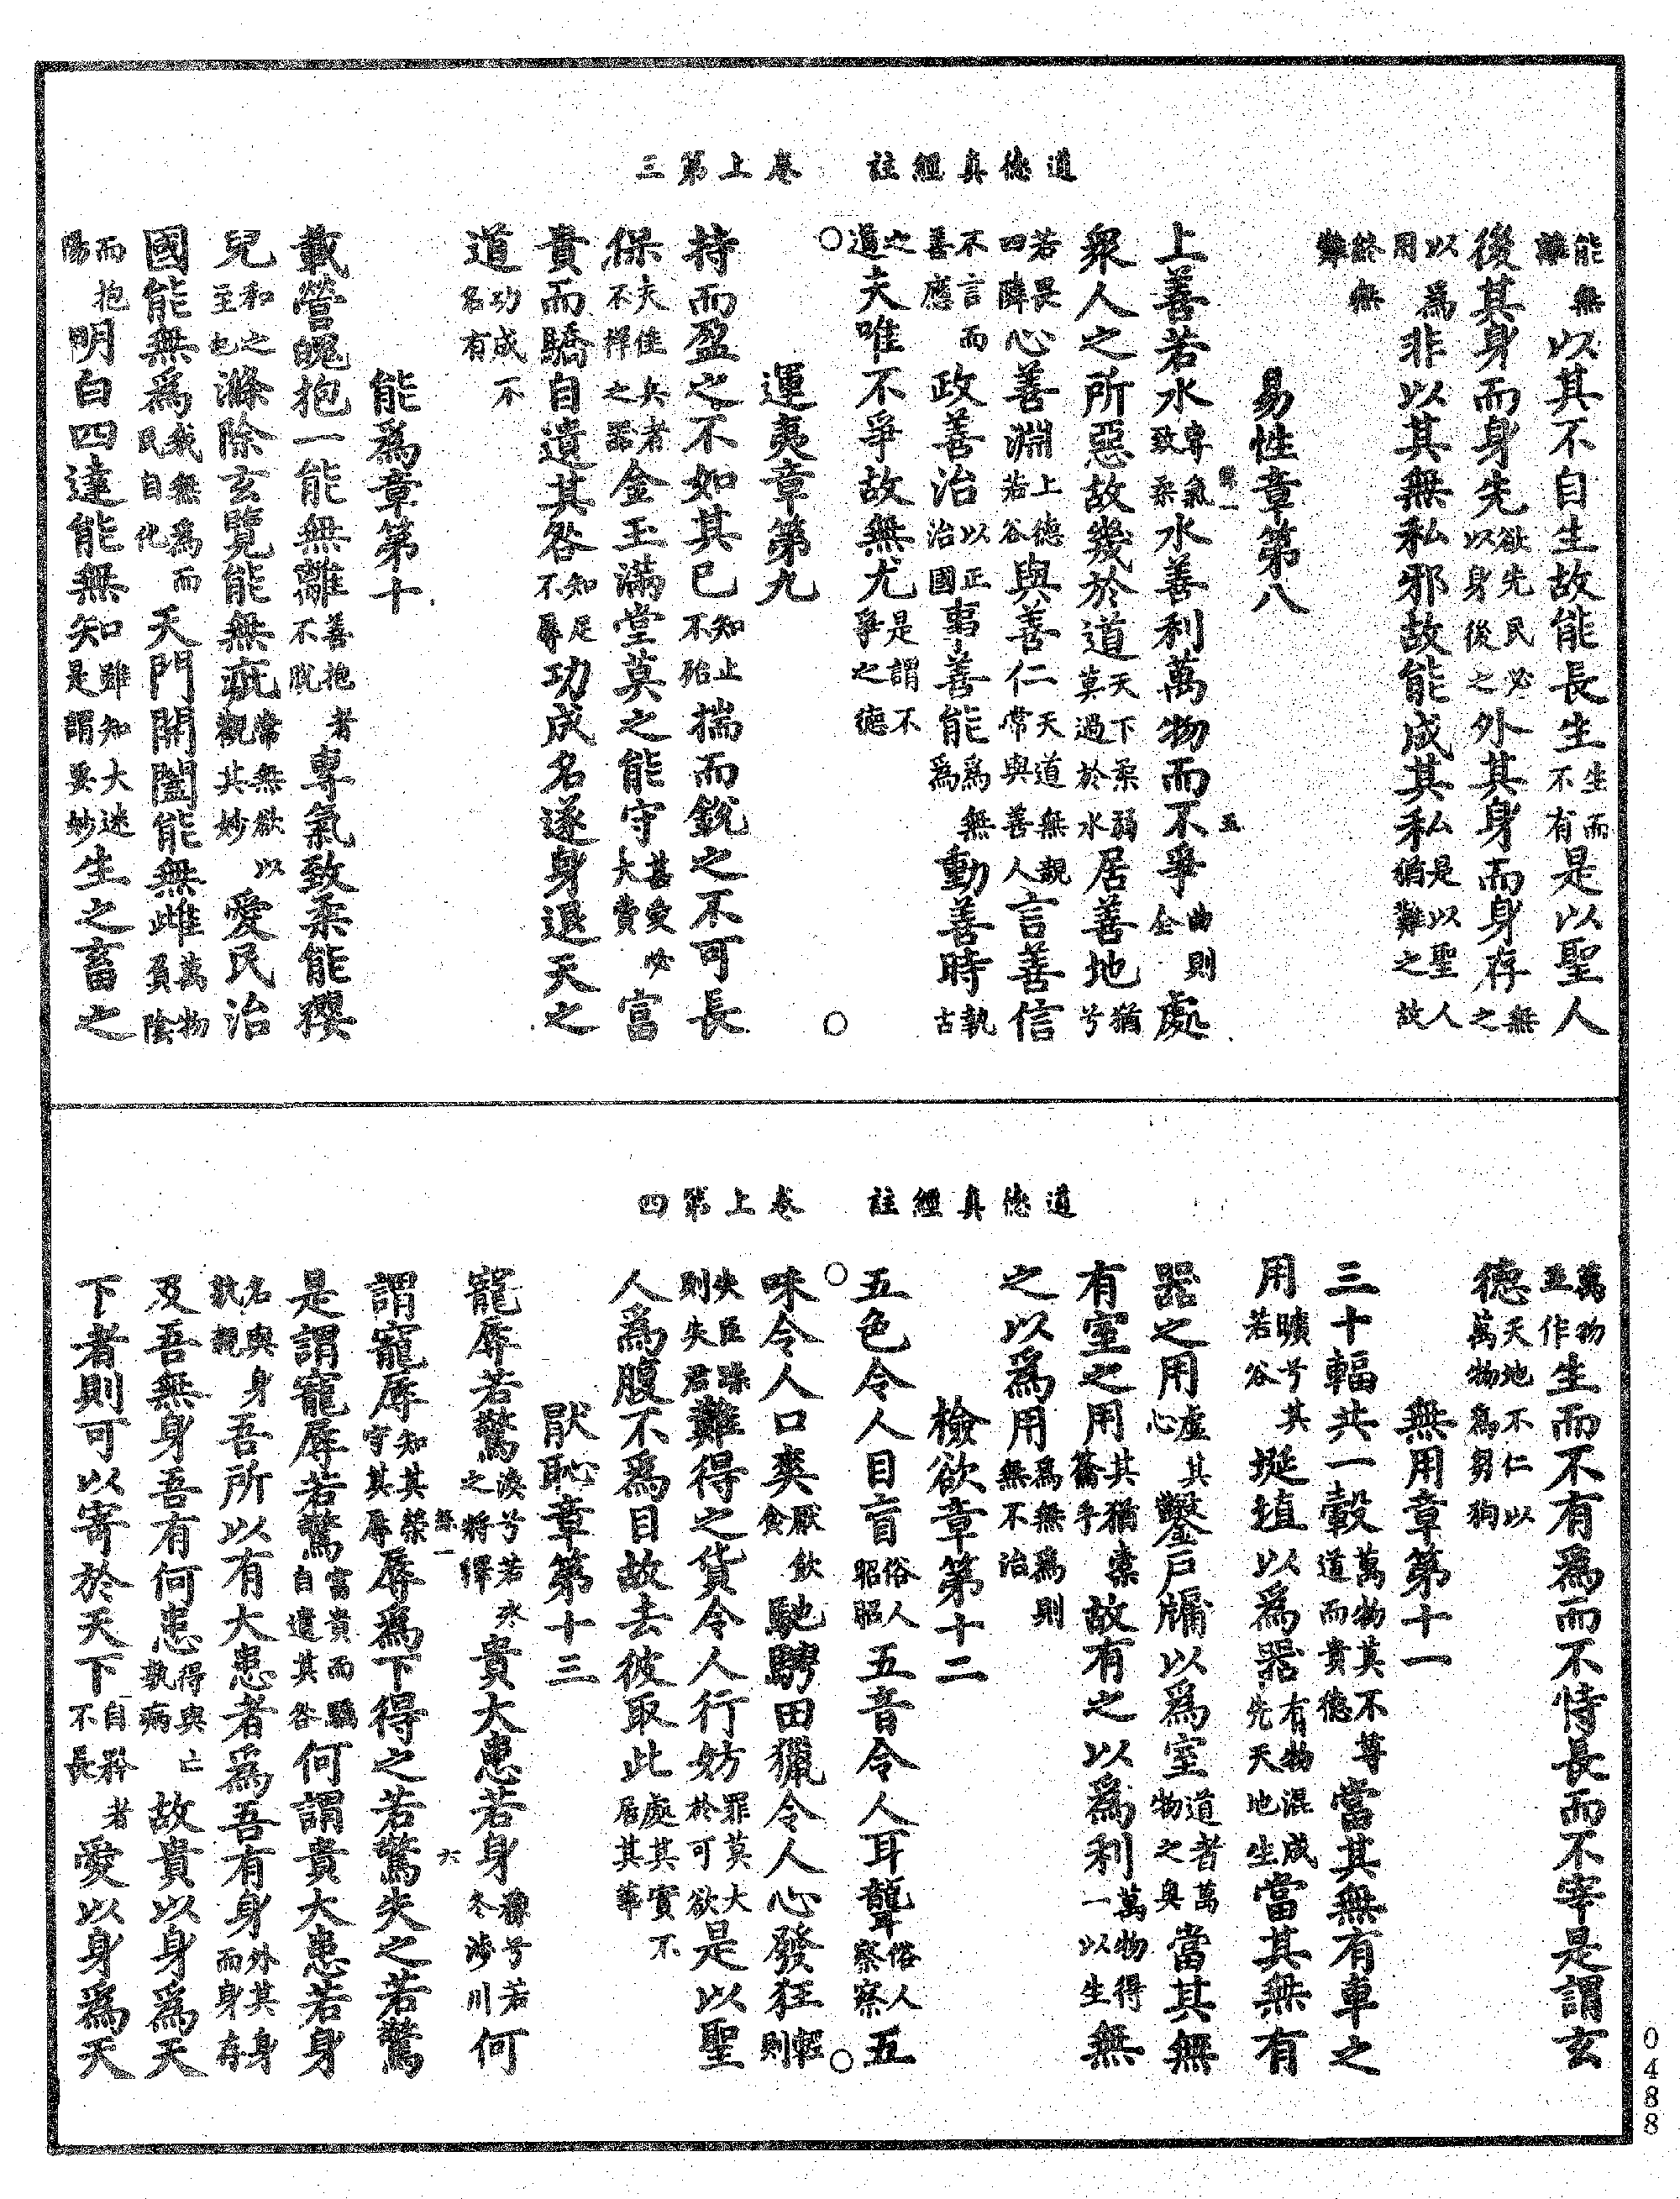 道德真經註 卷上第三
能無難以其不自生故能長生生而不有是以聖人
後其身而身先欲先民必以身後之外其身而身存無之
以爲用非以其無私邪故能成其私是以聖人猶難之故
終無難
易性章第八
難一 五
上善若水專氣致柔水善利萬物而不爭曲則全處
衆人之所惡故幾於道天下柔弱莫過於水居善地猶兮
若畏四隣心善淵上德若谷與善仁天道無親常與善人言善信
不言而善應政善治以正治國事善能爲無爲動善時執古
之道夫唯不爭故無尤是謂不爭之德
運夷章第九
持而盈之不如其已知止不殆揣而銳之不可長
保夫佳兵者不祥之器金玉滿堂莫之能守甚愛必大費富
貴而驕自遺其咎知足不辱功成名遂身退天之
道功成不名有
能爲章第十
載營魄抱一能無離善抱者不脫專氣致柔能嬰
兒和之至也滌除玄覽能無疵常無欲以觀其妙愛民治
國能無爲我無爲而民自化天門開闔能無雌萬物負陰
而抱陽明白四達能無知口雖知大迷是謂要妙生之畜之
道德真經註 卷上第四
萬物並作生而不有爲而不恃長而不宰是謂玄
德天地不仁以萬物爲芻狗
無用章第十一
三十輻共一轂萬物莫不尊道而貴德當其無有車之
用曠兮其若谷埏埴以爲器有物混成先天地生當其無有
器之用虛其心鑿戶牖以爲室道者萬物之奥當其無
有室之用其猶橐籥乎故有之以爲利萬物得一以生無
之以爲用爲無爲則無不治
檢欲章第十二
五色令人目盲俗人昭昭五音令人耳聾俗人察察五
味令人口爽厭飲食馳騁田獵令人心發狂輕則
失臣躁則失君難得之貨令人行妨罪莫大於可欲是以聖
人爲腹不爲目故去彼取此處其實不居其華
猒恥章第十三
寵辱若驚渙兮若冰之將釋貴大患若身豫兮若冬涉川何
難一 六
謂寵辱知其榮守其辱辱爲下得之若驚失之若驚
是謂寵辱若驚富貴而驕自遺其咎何謂貴大患若身
名與身孰親吾所以有大患者爲吾有身外其身而身存
及吾無身吾有何患得與亡孰病故貴以身爲天
下者則可以寄於天下自矜者不長愛以身爲天
0488